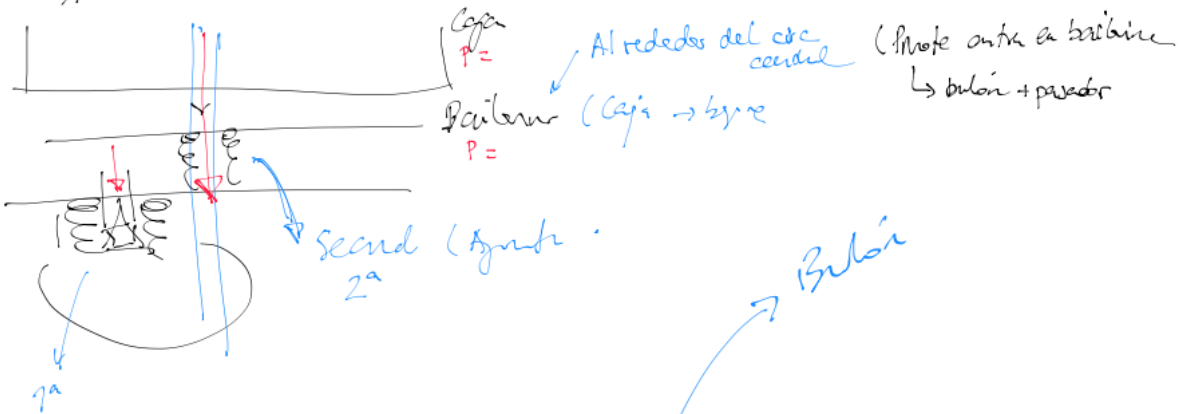 Caja
P =
Alrededor del eje
central
(Pivote entra en bailarina
↳ bulón + pasador
Bailarina (Caja → bogie
P =
Secund (Aguanta .
2ª
Bulón
1ª